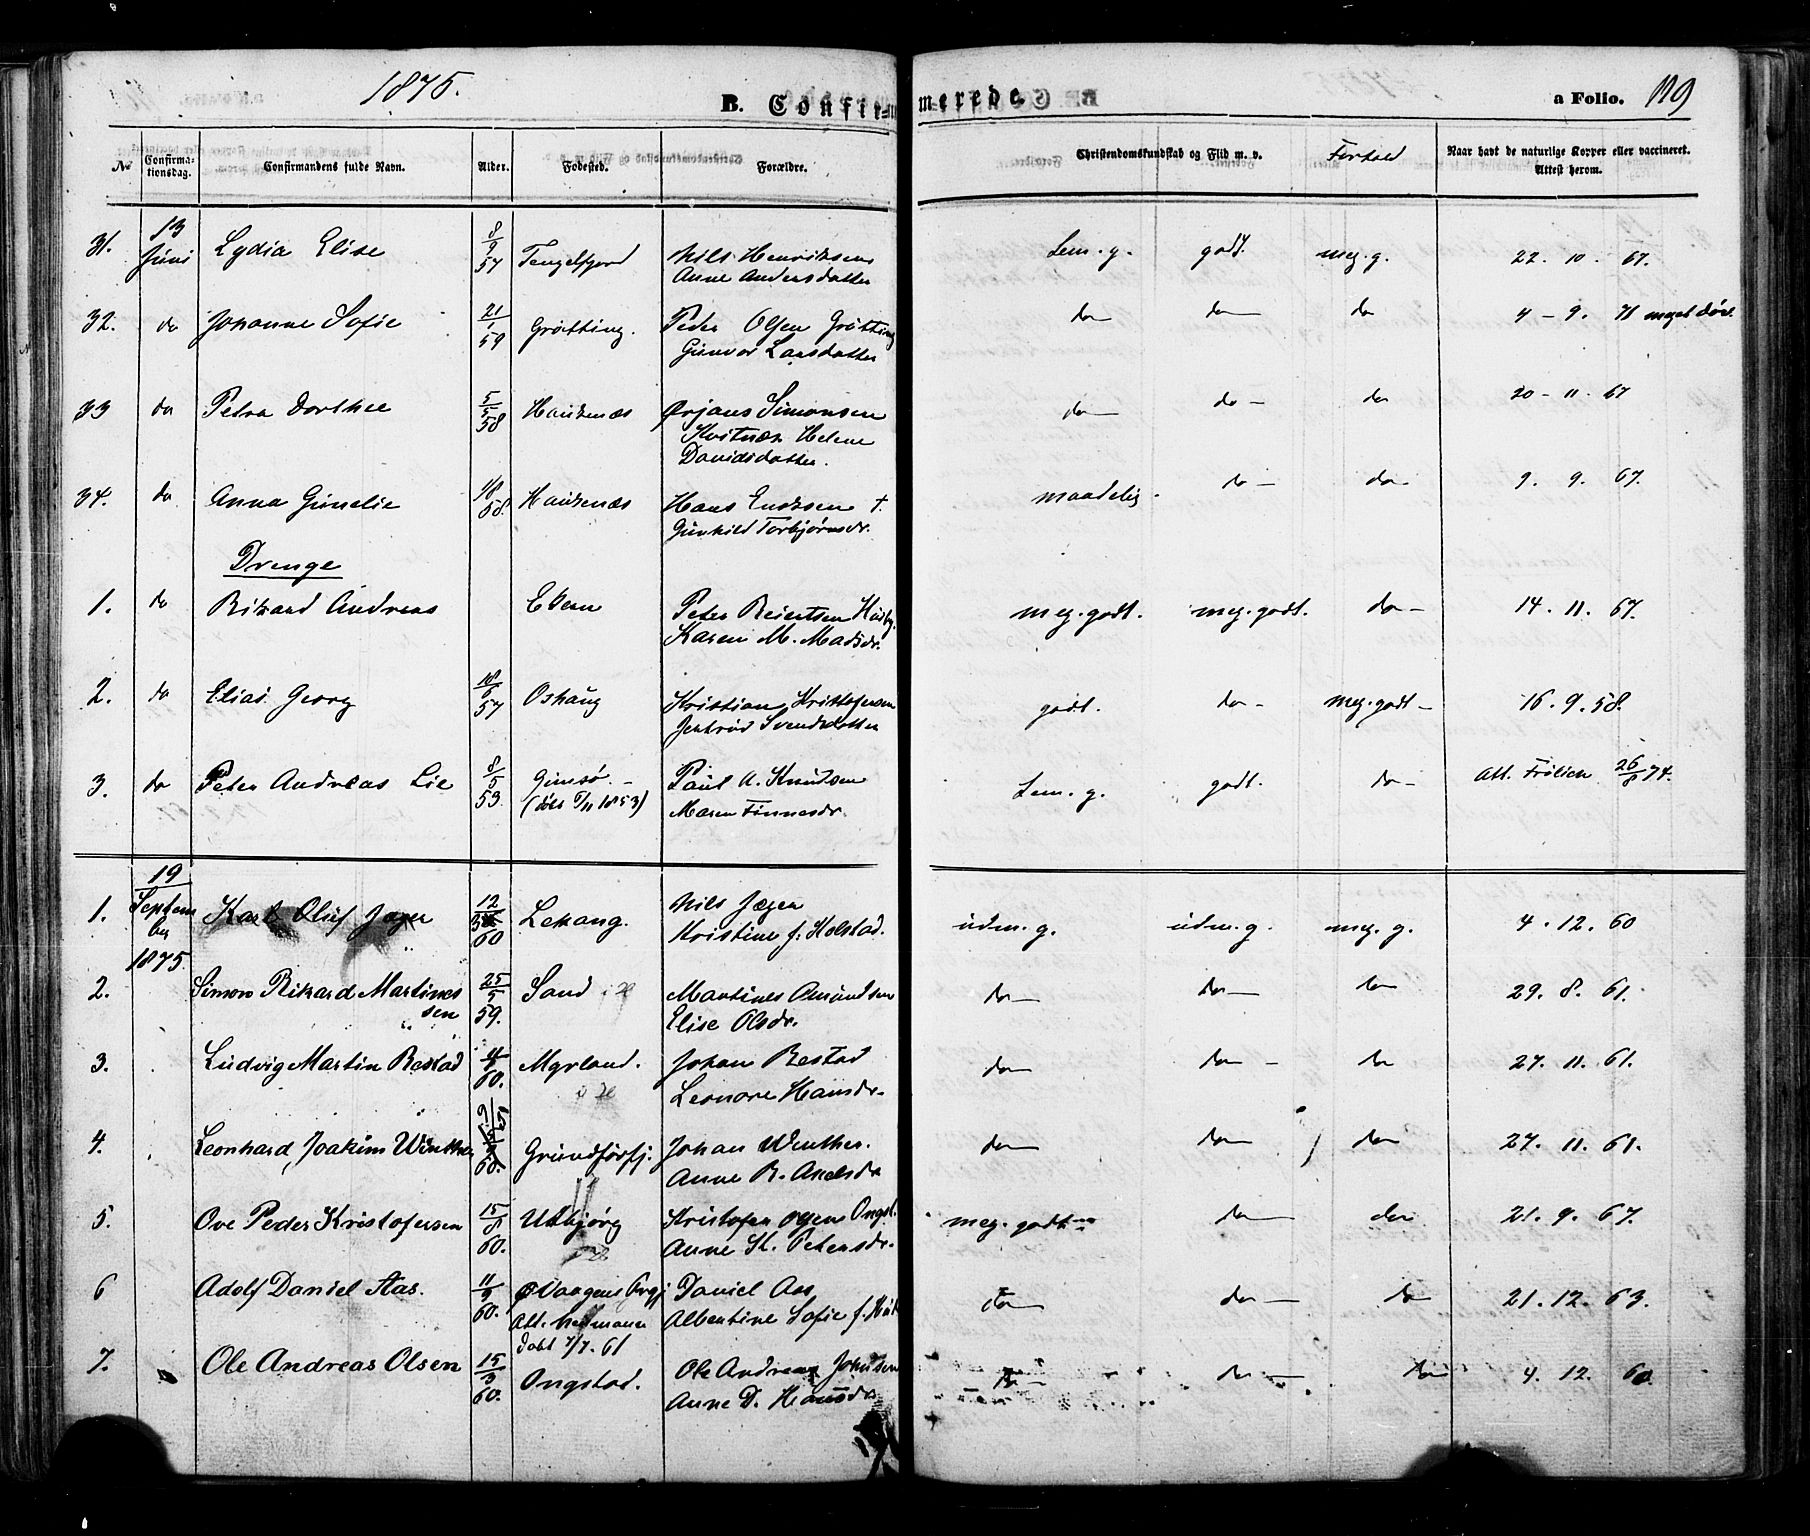 1875.
B. Confirmerede.
a Folio. 119
No
Confirmationsdag.
Confirmandens fulde Navn.
Alder.
Fødested.
Forældre.
Christendomskundskab og Flid m. v.
Forhold
Naar havt de naturlige Kopper eller vaccineret. Attest herom.
31. 13 Juni Lydia Elise 8/9 57 Tengelfjord Nils Henriksen Anne Andersdatter Tem. g. godt. meg. g. 22. 10. 67.
32. do Johanne Sofie 21/1 59 Grøtting. Peder Olsen Grøtting Gunvor Larsdatter do do do 4 - 9. 71 meget døv.
33 do Petra Dorthee 5/5 58 Haukenæs Ørjans Simonsen Kvitnæs Helene Davidsdatter. do do - do 20 - 11. 67
34. do Anna Gunelie 58. Haukenæs Hans Enoksen †. Gunhild Torbjørnsdr. maadelig. do - do - 9. 9. 67.
Drenge
1. do Rikard Andreas Peter Reiertsen Husby. Karen M. Madsdr. meg. godt. meg. godt. do - 14. 11. 67.
2. do Elias Georg 18/6 57 Oshaug Kristian Kristofersen Svendsdatter godt. do - meg. godt - 16. 9. 58.
3. do Peter Andreas Lie 8/5 53. Gimsø. - (døbt 6/11 1853) Paul A. Knutsen Maren Finnesdr. Tem. g. godt. do - Att. Frölich 26/8 74.
1. 19 September 1875. Karl Oluf Jæger 12/ 60 Lekang. Nils Jæger Kristine f. Kolstad. udm. g. udm. g. meg. g. 4. 12. 60
2. Simon Rikard Martinessen 25/5 59. Sand Martines Amundsen Elise Olsdr. do - do - do 29. 8. 61.
3. Ludvig Martin Restad 60. Myrland. Johan Restad Leonore Hansdr. do do - do 27. 11. 61.
4. Leonhard Joakim Winther 60. Grundførfj. Johan Winther. Anne R. Axelsdr do do do 27. 11. 61.
5. Ove Peder Kristofersen 15/8 60. Utbjørg Kristofer Olsen Ongst. Anne K. Petersdr. meg. godt do do 21. 9. 67.
6 Adolf Daniel Aas. 11/9 60. Ø Vaagens Prgj Att. døbt 7/7. 61 Daniel Aas Albertine Sofie f. do do - do 21. 12. 63.
7. Ole Andreas Olsen 15/3 60. Ongstad. Ole Andreas Johnsen Anne D. Hansdr do do - do 4. 12. 60.